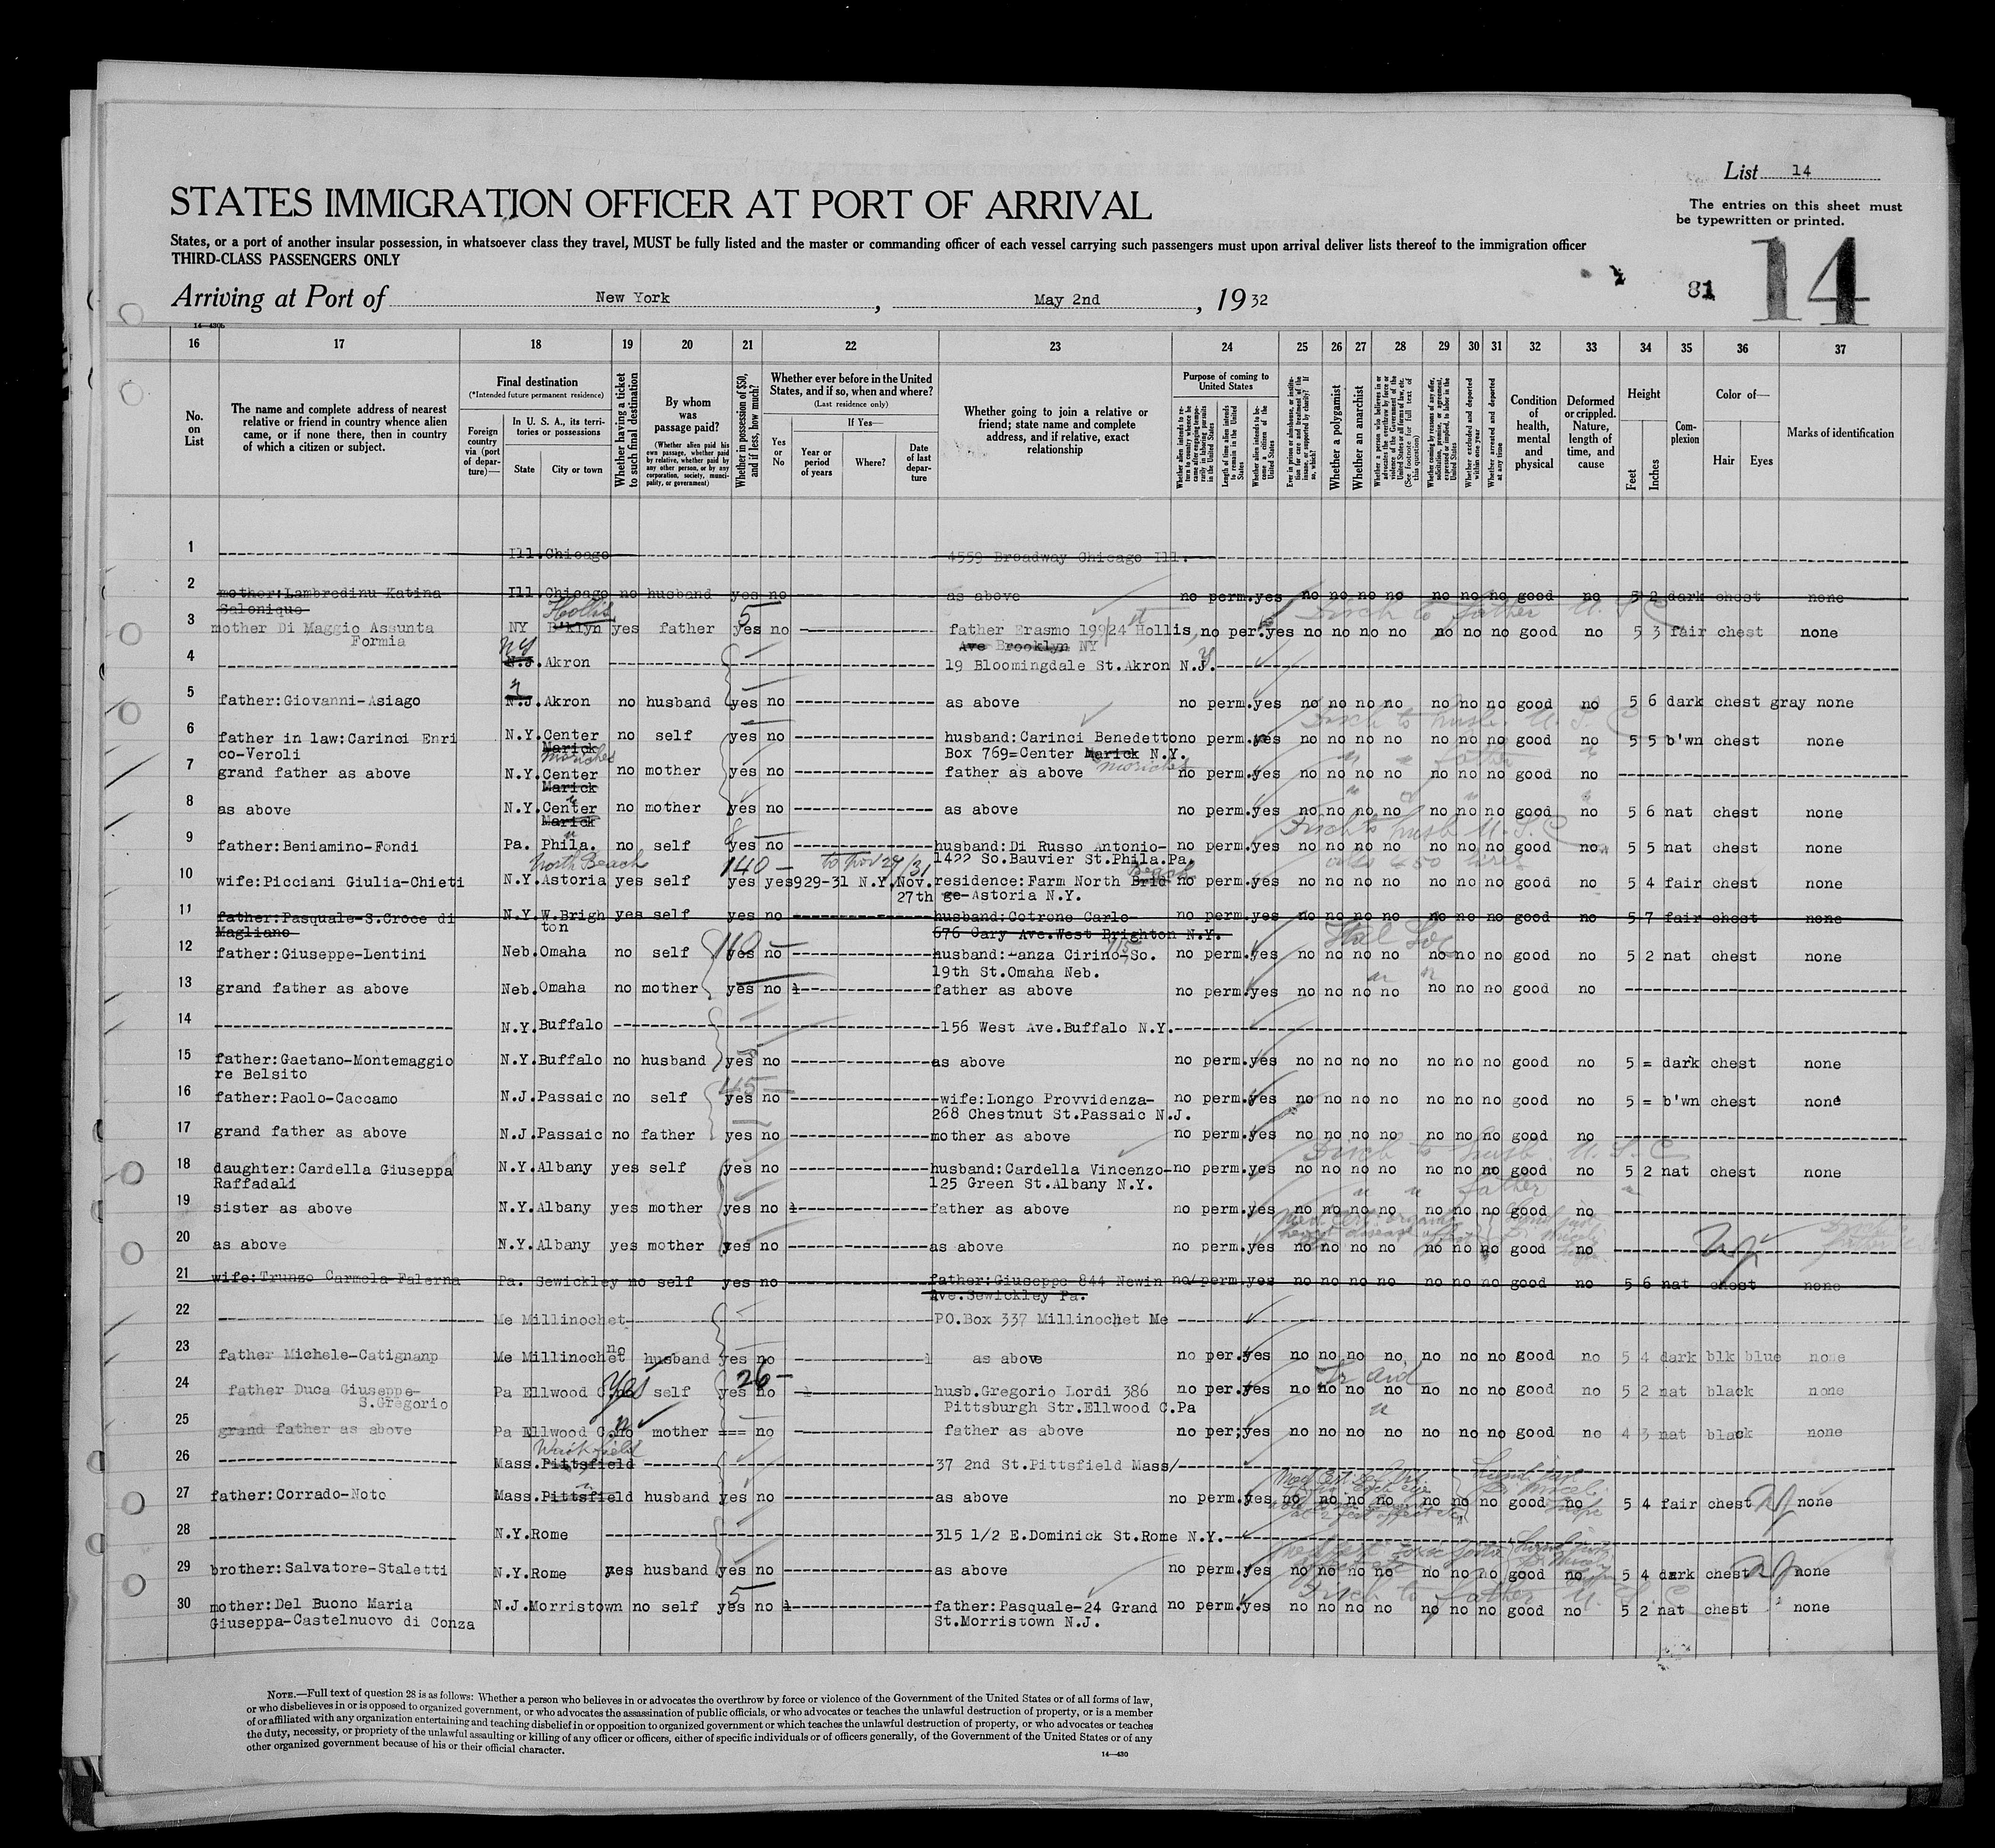 List 14
STATES IMMIGRATION OFFICER AT PORT OF ARRIVAL
The entries on this sheet must
be typewritten or printed.
States, or a port of another insular possession, in whatsoever class they travel, MUST be fully listed and the master or commanding officer of each vessel carrying such passengers must upon arrival deliver lists thereof to the immigration officer
THIRD-CLASS PASSENGERS ONLY
14
81
Arriving at Port of New York, May 2nd, 1932
16 17 18 19 20 21 22 23 24 25 26 27 28 29 30 31 32 33 34 35 36 37
No. on List
The name and complete address of nearest relative or friend in country whence alien came, or if none there, then in country of which a citizen or subject.
Final destination
(*Intended future permanent residence)
Foreign country via (port of departure)—
In U. S. A., its territories or possessions
State
City or town
Whether having a ticket to such final destination
By whom was passage paid?
(Whether alien paid his own passage, whether paid by relative, whether paid by any other person, or by any corporation, society, municipality, or government)
Whether in possession of $50, and if less, how much?
Whether ever before in the United States, and if so, when and where?
(Last residence only)
Yes or No
If Yes—
Year or period of years
Where?
Date of last departure
Whether going to join a relative or friend; state name and complete address, and if relative, exact relationship
Purpose of coming to United States
Whether alien intends to return to country whence he came after engaging temporarily in laboring pursuits in the United States
Length of time alien intends to remain in the United States
Whether alien intends to become a citizen of the United States
Whether a polygamist
Whether an anarchist
Whether excluded and deported within one year
Whether arrested and deported at any time
Condition of health, mental and physical
Deformed or crippled. Nature, length of time, and cause
Height
Feet
Inches
Complexion
Color of—
Hair
Eyes
Marks of identification
1 Ill. Chicago 4559 Broadway Chicago Ill.
2 mother:Lambredinu Katina Ill. Chicago no husband yes no as above no perm. yes no no no no no no no good no 5 2 dark chest none
Salonique
Hollis 5
3 mother Di Maggio Assunta NY B'klyn yes father yes no father Erasmo 199/24 Hollis, no per. yes no no no no no no no good no 5 3 fair chest none
Formia Ave Brooklyn NY
4 N.J. Akron 19 Bloomingdale St. Akron N.J.
5 father:Giovanni-Asiago N.J. Akron no husband yes no as above no perm. yes no no no no no no no good no 5 6 dark chest gray none
6 father in law:Carinci Enri N.Y. Center no self yes no husband: Carinci Benedetto no perm. yes no no no no no no no good no 5 5 b'wn chest none
co-Veroli Marick Moriches Box 769=Center Marick N.Y. Moriches
7 grand father as above N.Y. Center no mother yes no father as above no perm. yes no no no no no no no good no
Marick
8 as above N.Y. Center no mother yes no as above no perm. yes no no no no no no no good no 5 6 nat chest none
Marick
9 father:Beniamino-Fondi Pa. Phila. no self yes no husband: Di Russo Antonio- no perm. yes no no no no no no no good no 5 5 nat chest none
North Beach 140 — to Nov 27/31 1422 So. Bauvier St. Phila. Pa.
10 wife:Picciani Giulia-Chieti N.Y. Astoria yes self yes yes 929-31 N.Y. Nov. residence: Farm North Brid Beach no perm. yes no no no no no no no good no 5 4 fair chest none
27th ge-Astoria N.Y.
11 father:Pasquale-S.Croce di N.Y. W.Brigh yes self yes no husband: Cotrone Carlo- no perm. yes no no no no no no no good no 5 7 fair chest none
Magliano ton 676 Cary Ave. West Brighton N.Y.
12 father:Giuseppe-Lentini Neb. Omaha no self yes no husband: Lanza Cirino-So. no perm. yes no no no no no no no good no 5 2 nat chest none
19th St. Omaha Neb.
13 grand father as above Neb. Omaha no mother yes no father as above no perm. yes no no no no no no no good no
14 N.Y. Buffalo 156 West Ave. Buffalo N.Y.
15 father:Gaetano-Montemaggio N.Y. Buffalo no husband yes no as above no perm. yes no no no no no no no good no 5 = dark chest none
re Belsito 45 —
16 father:Paolo-Caccamo N.J. Passaic no self yes no wife: Longo Provvidenza- no perm. yes no no no no no no no good no 5 = b'wn chest none
268 Chestnut St. Passaic N.J.
17 grand father as above N.J. Passaic no father yes no mother as above no perm. yes no no no no no no no good no
18 daughter:Cardella Giuseppa N.Y. Albany yes self yes no husband: Cardella Vincenzo- no perm. yes no no no no no no no good no 5 2 nat chest none
Raffadali 125 Green St. Albany N.Y.
19 sister as above N.Y. Albany yes mother yes no father as above no perm. yes no no no no no no no good no
20 as above N.Y. Albany yes mother yes no as above no perm. yes no no no no no no no good no
21 wife:Trunzo Carmela-Falerna Pa. Sewickley no self yes no father: Giuseppe 844 Newin no perm. yes no no no no no no no good no 5 6 nat chest none
Ave. Sewickley Pa.
22 Me Millinochet PO.Box 337 Millinochet Me
23 father Michele-Catignanp Me Millinochet no husband yes no as above no per. yes no no no no no no no good no 5 4 dark blk blue none
Yes 26 —
24 father Duca Giuseppe- Pa Ellwood C. no self yes no husb. Gregorio Lordi 386 no per. yes no no no no no no no good no 5 2 nat black none
S.Gregorio Pittsburgh Str. Ellwood C.Pa
25 grand father as above Pa Ellwood C. no mother === no father as above no per; yes no no no no no no no good no 4 3 nat black none
26 Mass. Pittsfield 37 2nd St. Pittsfield Mass/
27 father:Corrado-Noto Mass. Pittsfield husband yes no as above no perm. yes no no no no no no no good no 5 4 fair chest none
28 N.Y. Rome 315 1/2 E. Dominick St. Rome N.Y.
29 brother:Salvatore-Staletti N.Y. Rome yes husband yes no as above no perm. yes no no no no no no no good no 5 4 dark chest none
5
30 mother:Del Buono Maria N.J. Morristown no self yes no father: Pasquale-24 Grand no perm. yes no no no no no no no good no 5 2 nat chest none
Giuseppa-Castelnuovo di Conza St. Morristown N.J.
NOTE.—Full text of question 28 is as follows: Whether a person who believes in or advocates the overthrow by force or violence of the Government of the United States or of all forms of law,
or who disbelieves in or is opposed to organized government, or who advocates the assassination of public officials, or who advocates or teaches the unlawful destruction of property, or is a member
of or affiliated with any organization entertaining and teaching disbelief in or opposition to organized government or which teaches the unlawful destruction of property, or who advocates or teaches
the duty, necessity, or propriety of the unlawful assaulting or killing of any officer or officers, either of specific individuals or of officers generally, of the Government of the United States or of any
other organized government because of his or their official character.
14—430